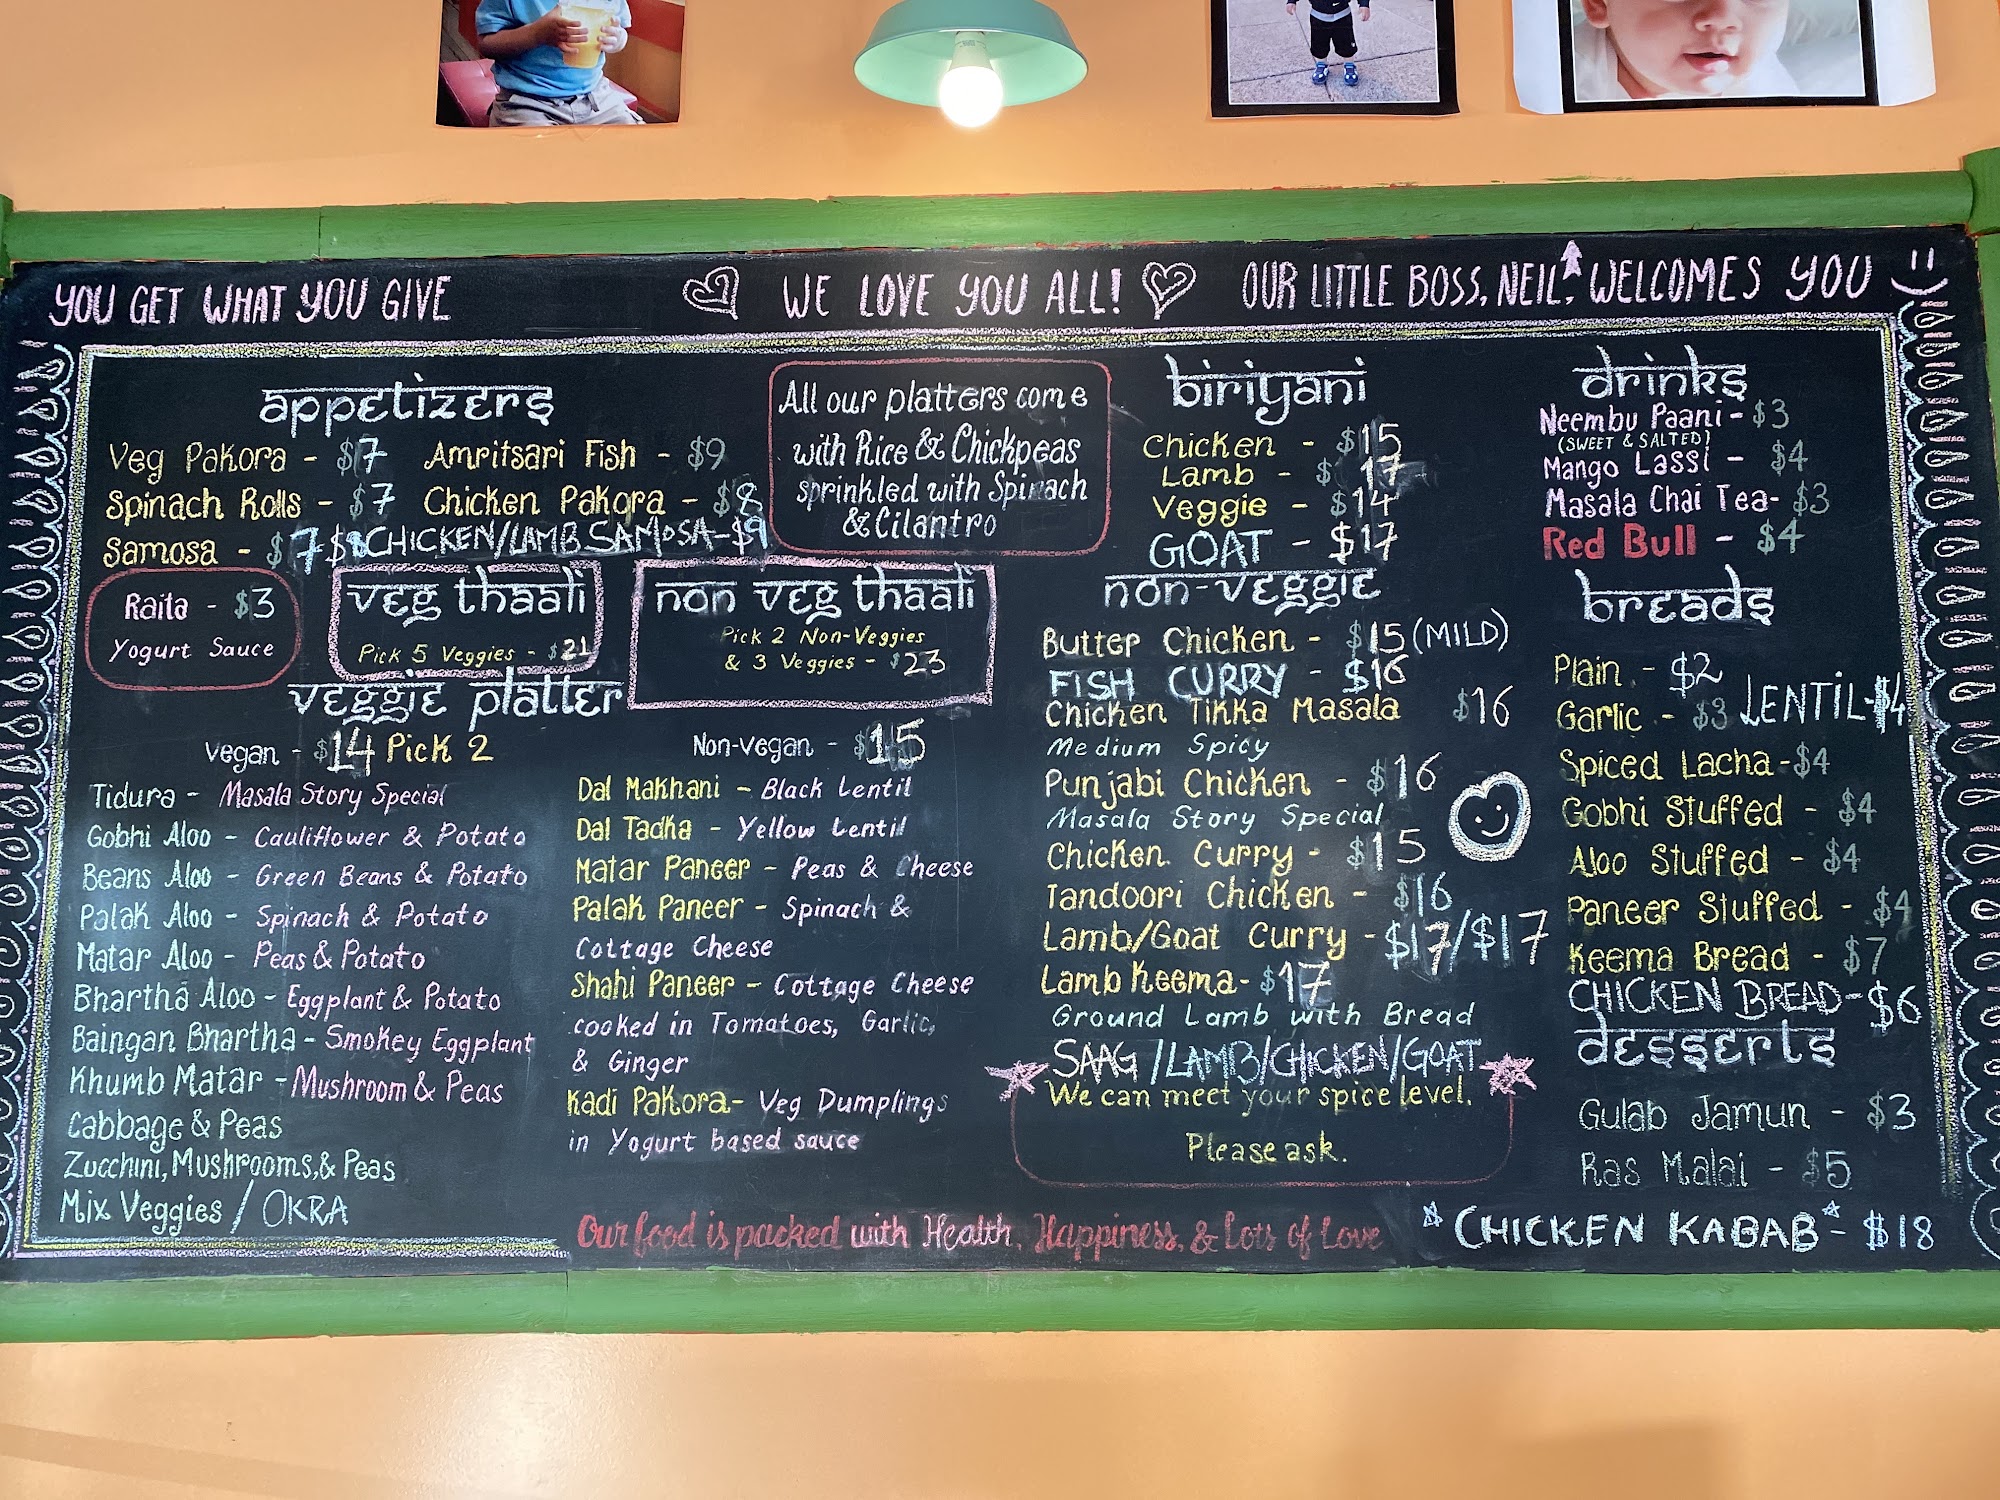 YOU GET WHAT YOU GIVE
WE LOVE YOU ALL!
OUR LITTLE BOSS, NEIL, WELCOMES YOU
appetizers
Veg Pakora - $7
Amritsari Fish - $9
Spinach Rolls - $7
Chicken Pakora - $8
Samosa - $7
CHICKEN/LAMB SAMOSA-$9
Raita - $3
Yogurt Sauce
veg thaali
Pick 5 Veggies - $21
non veg thaali
Pick 2 Non-Veggies
& 3 Veggies - $23
All our platters come
with Rice & Chickpeas
sprinkled with Spinach
& Cilantro
veggie platter
Vegan - $14 Pick 2
Tidura - Masala Story Special
Gobhi Aloo - Cauliflower & Potato
Beans Aloo - Green Beans & Potato
Palak Aloo - Spinach & Potato
Matar Aloo - Peas & Potato
Bhartha Aloo - Eggplant & Potato
Baingan Bhartha - Smokey Eggplant
Khumb Matar - Mushroom & Peas
Cabbage & Peas
Zucchini, Mushrooms, & Peas
Mix Veggies / OKRA
Non-Vegan - $15
Dal Makhani - Black Lentil
Dal Tadka - Yellow Lentil
Matar Paneer - Peas & Cheese
Palak Paneer - Spinach &
Cottage Cheese
Shahi Paneer - Cottage Cheese
cooked in Tomatoes, Garlic,
& Ginger
Kadi Pakora - Veg Dumplings
in Yogurt based sauce
biriyani
Chicken - $15
Lamb - $17
Veggie - $14
GOAT - $17
non-veggie
Butter Chicken - $15 (MILD)
FISH CURRY - $16
Chicken Tikka Masala $16
Medium Spicy
Punjabi Chicken - $16
Masala Story Special
Chicken Curry - $15
Tandoori Chicken - $16
Lamb/Goat Curry - $17/$17
Lamb Keema - $17
Ground Lamb with Bread
SAAG /LAMB/CHICKEN/GOAT
We can meet your spice level.
Please ask.
drinks
Neembu Paani - $3
(SWEET & SALTED)
Mango Lassi - $4
Masala Chai Tea - $3
Red Bull - $4
breads
Plain - $2
Garlic - $3
LENTIL-$4
Spiced Lacha - $4
Gobhi Stuffed - $4
Aloo Stuffed - $4
Paneer Stuffed - $4
Keema Bread - $7
CHICKEN BREAD - $6
desserts
Gulab Jamun - $3
Ras Malai - $5
CHICKEN KABAB - $18
Our food is packed with Health, Happiness, & Lots of Love